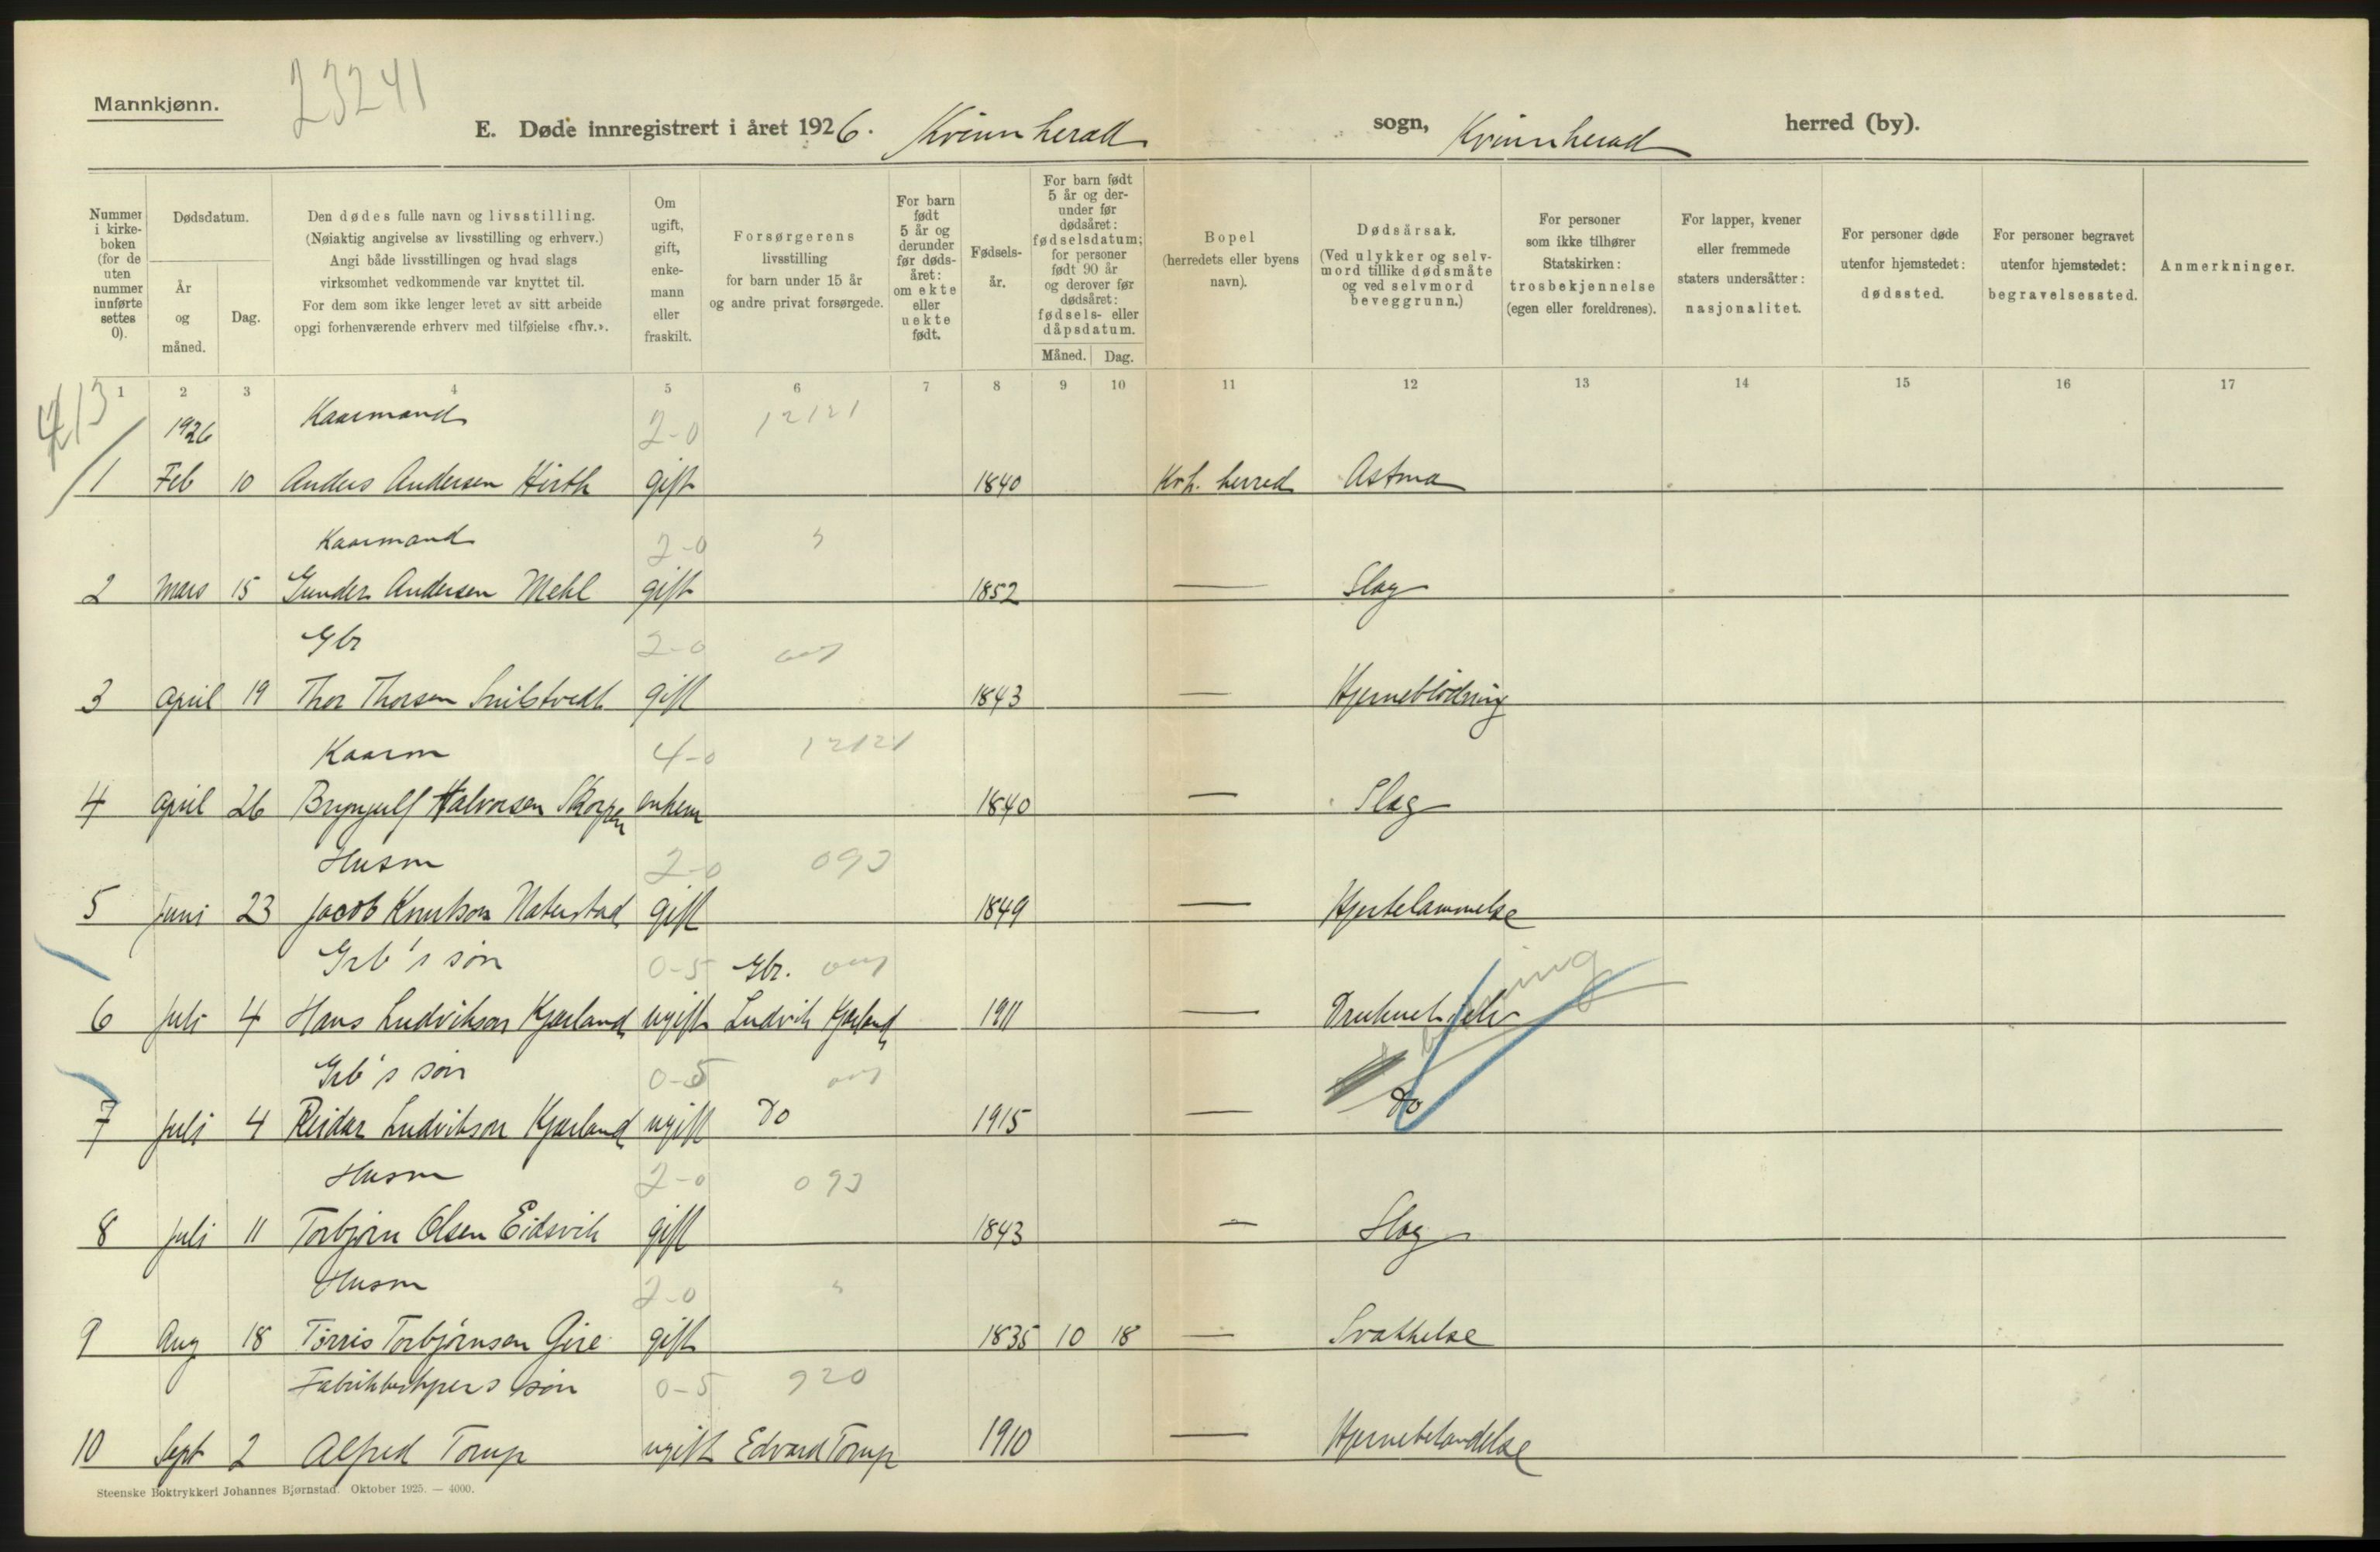 Mannkjønn.
23241
E. Døde innregistrert i året 1926. Kvinnherad sogn, Kvinnherad herred (by).
Nummer i kirkeboken (for de uten nummer innførte settes 0).
Dødsdatum.
År og måned.
Dag.
Den dødes fulle navn og livsstilling.
(Nøiaktig angivelse av livsstilling og erhverv.)
Angi både livsstillingen og hvad slags
virksomhet vedkommende var knyttet til.
For dem som ikke lenger levet av sitt arbeide
opgi forhenværende erhverv med tilføielse «fhv.».
Om ugift, gift, enkemann eller fraskilt.
Forsørgerens livsstilling
for barn under 15 år
og andre privat forsørgede.
For barn født 5 år og derunder før dødsåret: om ekte eller uekte født.
Fødselsår.
For barn født 5 år og derunder før dødsåret: fødselsdatum; for personer født 90 år og derover før dødsåret: fødsels- eller dåpsdatum.
Måned. Dag.
Bopel
(herredets eller byens navn).
Dødsårsak.
(Ved ulykker og selvmord tillike dødsmåte og ved selvmord beveggrunn.)
For personer som ikke tilhører Statskirken: trosbekjennelse (egen eller foreldrenes).
For lapper, kvener eller fremmede staters undersåtter: nasjonalitet.
For personer døde utenfor hjemstedet: dødssted.
For personer begravet utenfor hjemstedet: begravelsessted.
Anmerkninger.
1 2 3 4 5 6 7 8 9 10 11 12 13 14 15 16 17
1926 Kaarmand 2-0 12121
1 Feb 10 Anders Andersen Hirth gift 1840 Kvh. herred Astma
Kaarmand 2-0 "
2 Mars 15 Gunder Andersen Mehl gift 1852 — Slag
Gbr 2-0
3 April 19 Thor Thorsen Snilstvedt gift 1843 — Hjerneblödning
Kaarm 4-0 12121
4 April 26 Brynjulf Halvorsen Skorpen enkem 1840 — Slag
Husm 2-0 093
5 Juni 23 Jacob Knutson Naterstad gift 1849 — Hjertelammelse
Grb's søn 0-5 Gbr.
6 Juli 4 Hans Ludvikson Kjærland ugift Ludvik Kjærland 1911 — Druknet
Grb's søn 0-5
7 Juli 4 Reidar Ludvikson Kjærland ugift Do 1915 — Do
Husm 2-0 093
8 Juli 11 Torbjørn Olsen Eidsvik gift 1843 — Slag
Husm 2-0 "
9 Aug 18 Tørris Torbjørnsen Gjre gift 1835 10 18 — Svakkelse
søn 0-5 920
10 Sept 2 Alfred Torup ugift Edvard Torup 1910 — Hjernebetændelse
Steenske Boktrykkeri Johannes Bjørnstad. Oktober 1925. — 4000.